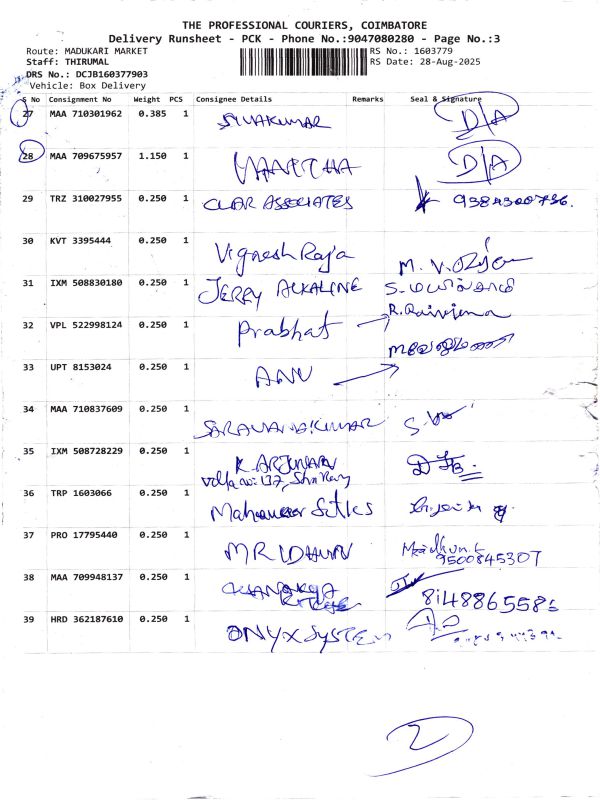 THE PROFESSIONAL COURIERS, COIMBATORE
Delivery Runsheet - PCK - Phone No.:9047080280 - Page No.:3
Route: MADUKARI MARKET RS No.: 1603779
Staff: THIRUMAL RS Date: 28-Aug-2025
DRS No.: DCJB160377903
Vehicle: Box Delivery
S No Consignment No Weight PCS Consignee Details Remarks Seal & Signature
27 MAA 710301962 0.385 1 SIVAKUMAR D/A
28 MAA 709675957 1.150 1 D/A
29 TRZ 310027955 0.250 1 ASSOCIATES
30 KVT 3395444 0.250 1 Vignesh Raja
31 IXM 508830180 0.250 1 JERRY ALKALINE
32 VPL 522998124 0.250 1 Prabhat
33 UPT 8153024 0.250 1 ANU
34 MAA 710837609 0.250 1 SARAVANAKUMAR
35 IXM 508728229 0.250 1 K. ARJUNAN
36 TRP 1603066 0.250 1
37 PRO 17795440 0.250 1 MRIDHUN
9500845307
38 MAA 709948137 0.250 1 CHANAKYA
39 HRD 362187610 0.250 1 ONYX SYSTEM
2